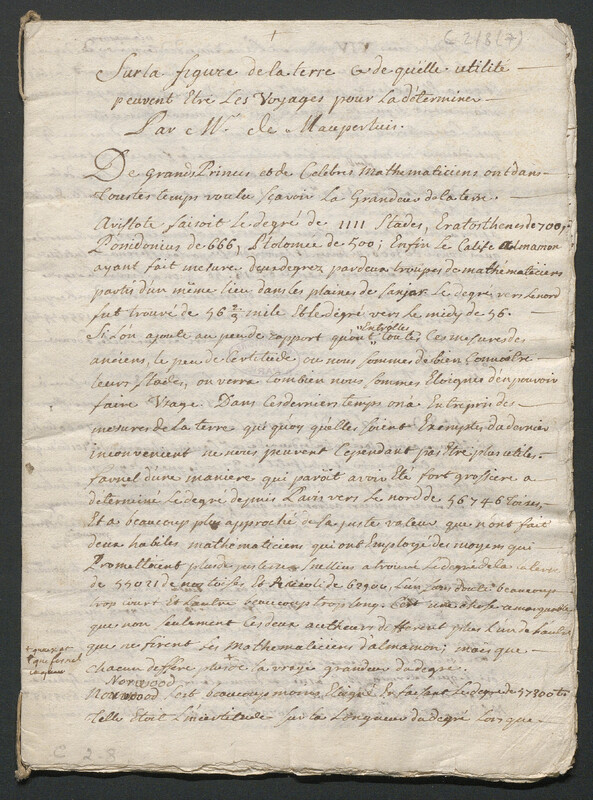 C 218(7)
1
Sur la figure de la terre & de quelle utilité
peuvent Etre Les Voyages pour la déterminer
Par Mr. de Maupertuis.
De grands Princes et de Celebres Mathematiciens ont dans
tous les temps voulu sçavoir La Grandeur de la terre
Aristote faisoit Le degré de 1111 Stades, Eratosthenes de 700,
Posidonius de 666, Ptolomée de 500; Enfin Le Calife almamon
ayant fait mesurer deux degrez par deux troupes de mathematiciens
partis d'un même lieu dans les plaines de Sanjar Le degré vers le nord
fut trouvé de 56 2/3 mile Et le degré vers le midy de 56.
Si L'on ajoute au peu de rapport qu'ont Entr'elles toutes Ces mesures des
anciens, le peu de Certitude ou nous sommes de bien Connoitre
leurs Stades, on verra combien nous sommes Eloignés d'en pouvoir
faire Usage. Dans Ces derniers temps on a Entrepris des
mesures de la terre qui quoy qu'elles soient Exemptes du dernier
inconvenient ne nous peuvent Cependant pas Etre plus utiles.
favnel d'une maniere qui paroît avoir Eté fort grossiere a
determiné Le degré depuis Paris vers Le nord de 56746 Toises
Et a beaucoup plus approché de la juste valeur que n'ont fait
deux habiles mathematiciens qui ont Employé des moyens qui
Promettoient plus de justesse Snellius a trouvé Le degré de la terre
de 55021 de nos toises Et Riccioli de 62900 L'un sans doute beaucoup
trop court Et L'autre beaucoup trop long. C'est une chose remarquable
que non seulement Ces deux autheurs different plus L'un de L'autre
que ne firent Les Mathematiciens d'almamon; mais que
chacun differe plus de la vraye grandeur du degré.
Norwood
Norwood s'est beaucoup moins Eloigné En faisant Le degré de 57300 ts
Telle étoit L'incertitude sur la Longueur du degré Lorsque
C 2-8